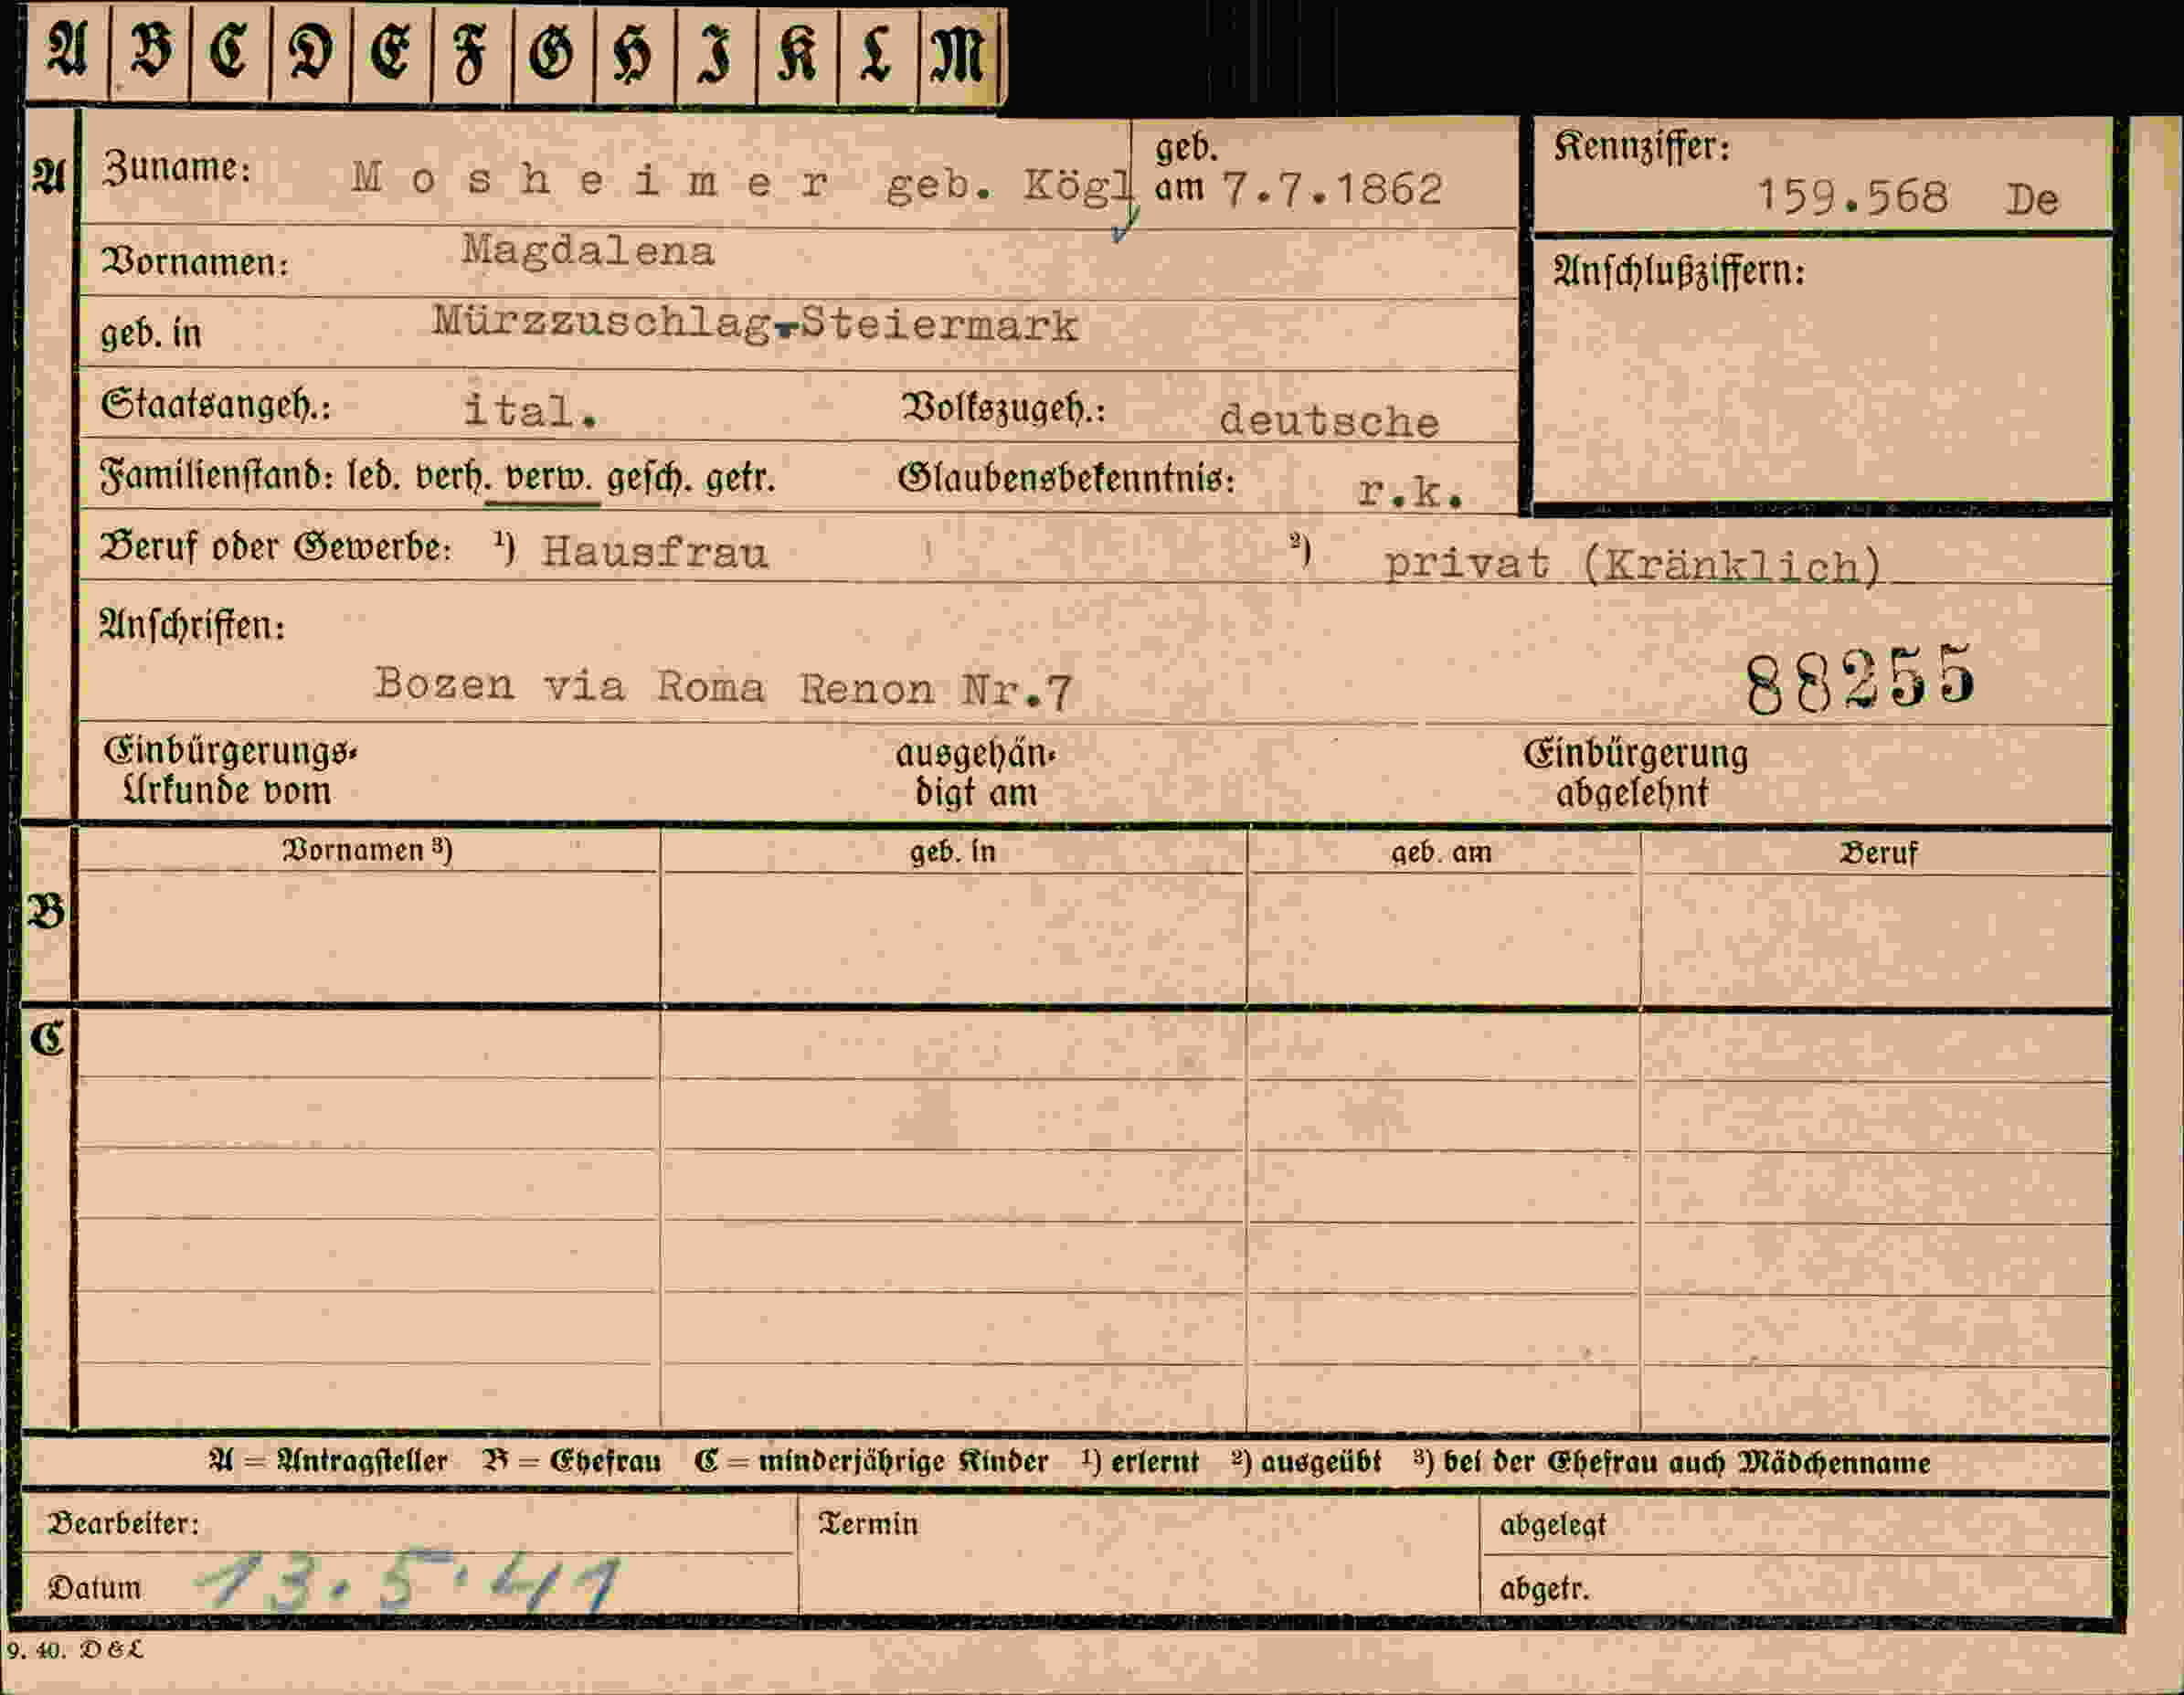 A B C D E F G H I K L M
A Zuname: Mosheimer geb. Kögl geb. am 7.7.1862
Kennziffer: 159.568 De
Vornamen: Magdalena
Anschlußziffern:
geb. in Mürzzuschlag-Steiermark
Staatsangeh.: ital. Volkszugeh.: deutsche
Familienstand: led. verh. verw. gesch. getr. Glaubensbekenntnis: r.k.
Beruf oder Gewerbe: ¹) Hausfrau ²) privat (Kränklich)
Anschriften:
Bozen via Roma Renon Nr.7 88255
Einbürgerungs- ausgehän- Einbürgerung
Urkunde vom digt am abgelehnt
Vornamen ³) geb. in geb. am Beruf
B
C
A = Antragsteller B = Ehefrau C = minderjährige Kinder ¹) erlernt ²) ausgeübt ³) bei der Ehefrau auch Mädchenname
Bearbeiter: Termin abgelegt
Datum 13.5.41 abgetr.
9. 40. D & L